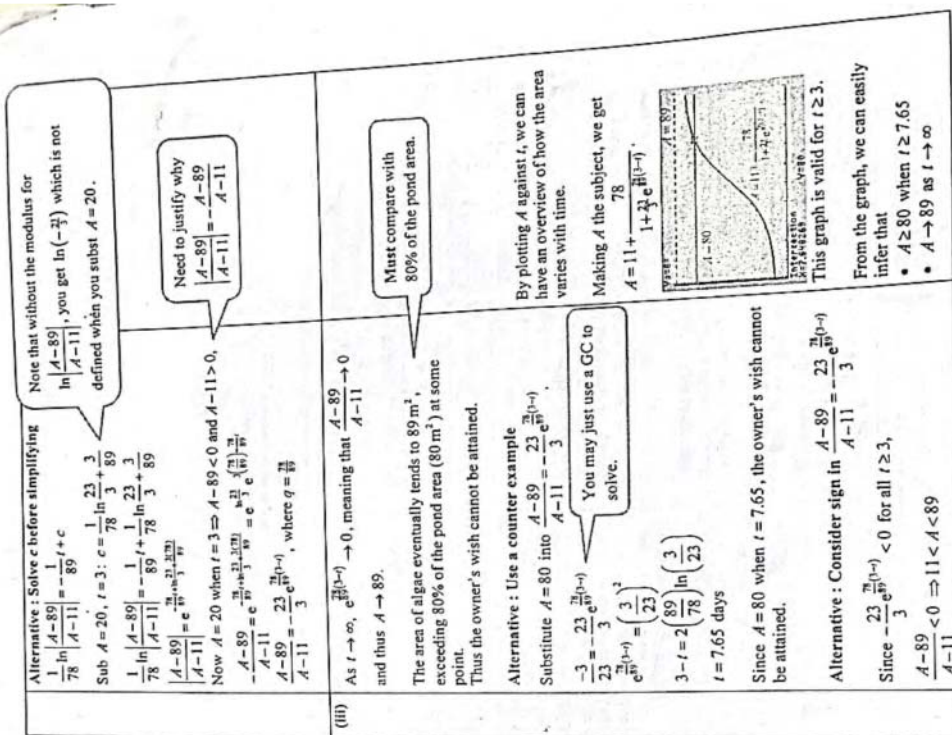 Alternative : Solve c before simplifying
1/78 ln|(A−89)/(A−11)| = −1/89 t + c
Sub A = 20, t = 3 : c = 1/78 ln 23/3 + 3/89
1/78 ln|(A−89)/(A−11)| = −1/89 t + 1/78 ln 23/3 + 3/89
|(A−89)/(A−11)| = e^(−78/89 t + ln 23/3 + 3(78)/89)
Now A = 20 when t = 3 ⇒ A − 89 < 0 and A − 11 > 0,
−(A−89)/(A−11) = e^(−78/89 t + ln 23/3 + 3(78)/89) = e^(ln 23/3) e^(3(78/89) − 78/89 t)
(A−89)/(A−11) = −23/3 e^(78/89 (3−t)), where q = 78/89
Note that without the modulus for
ln|(A−89)/(A−11)|, you get ln(−23/3) which is not
defined when you subst A = 20.
Need to justify why
|(A−89)/(A−11)| = −(A−89)/(A−11)
(iii)
As t → ∞, e^(78/89 (3−t)) → 0, meaning that (A−89)/(A−11) → 0
and thus A → 89.
The area of algae eventually tends to 89 m²,
exceeding 80% of the pond area (80 m²) at some
point.
Thus the owner's wish cannot be attained.
Must compare with
80% of the pond area.
Alternative : Use a counter example
Substitute A = 80 into (A−89)/(A−11) = −23/3 e^(78/89 (3−t)).
−3/23 = −23/3 e^(78/89 (3−t))
e^(78/89 (3−t)) = (3/23)²
3 − t = 2(89/78) ln(3/23)
t = 7.65 days
You may just use a GC to
solve.
Since A = 80 when t = 7.65, the owner's wish cannot
be attained.
Alternative : Consider sign ln (A−89)/(A−11) = −23/3 e^(78/89 (3−t))
Since −23/3 e^(78/89 (3−t)) < 0 for all t ≥ 3,
(A−89)/(A−11) < 0 ⇒ 11 < A < 89
By plotting A against t, we can
have an overview of how the area
varies with time.
Making A the subject, we get
A = 11 + 78/(1 + 23/3 e^(78/89 (3−t))).
A = 89
A = 80
Intersection
Y=80
This graph is valid for t ≥ 3.
From the graph, we can easily
infer that
• A ≥ 80 when t ≥ 7.65
• A → 89 as t → ∞